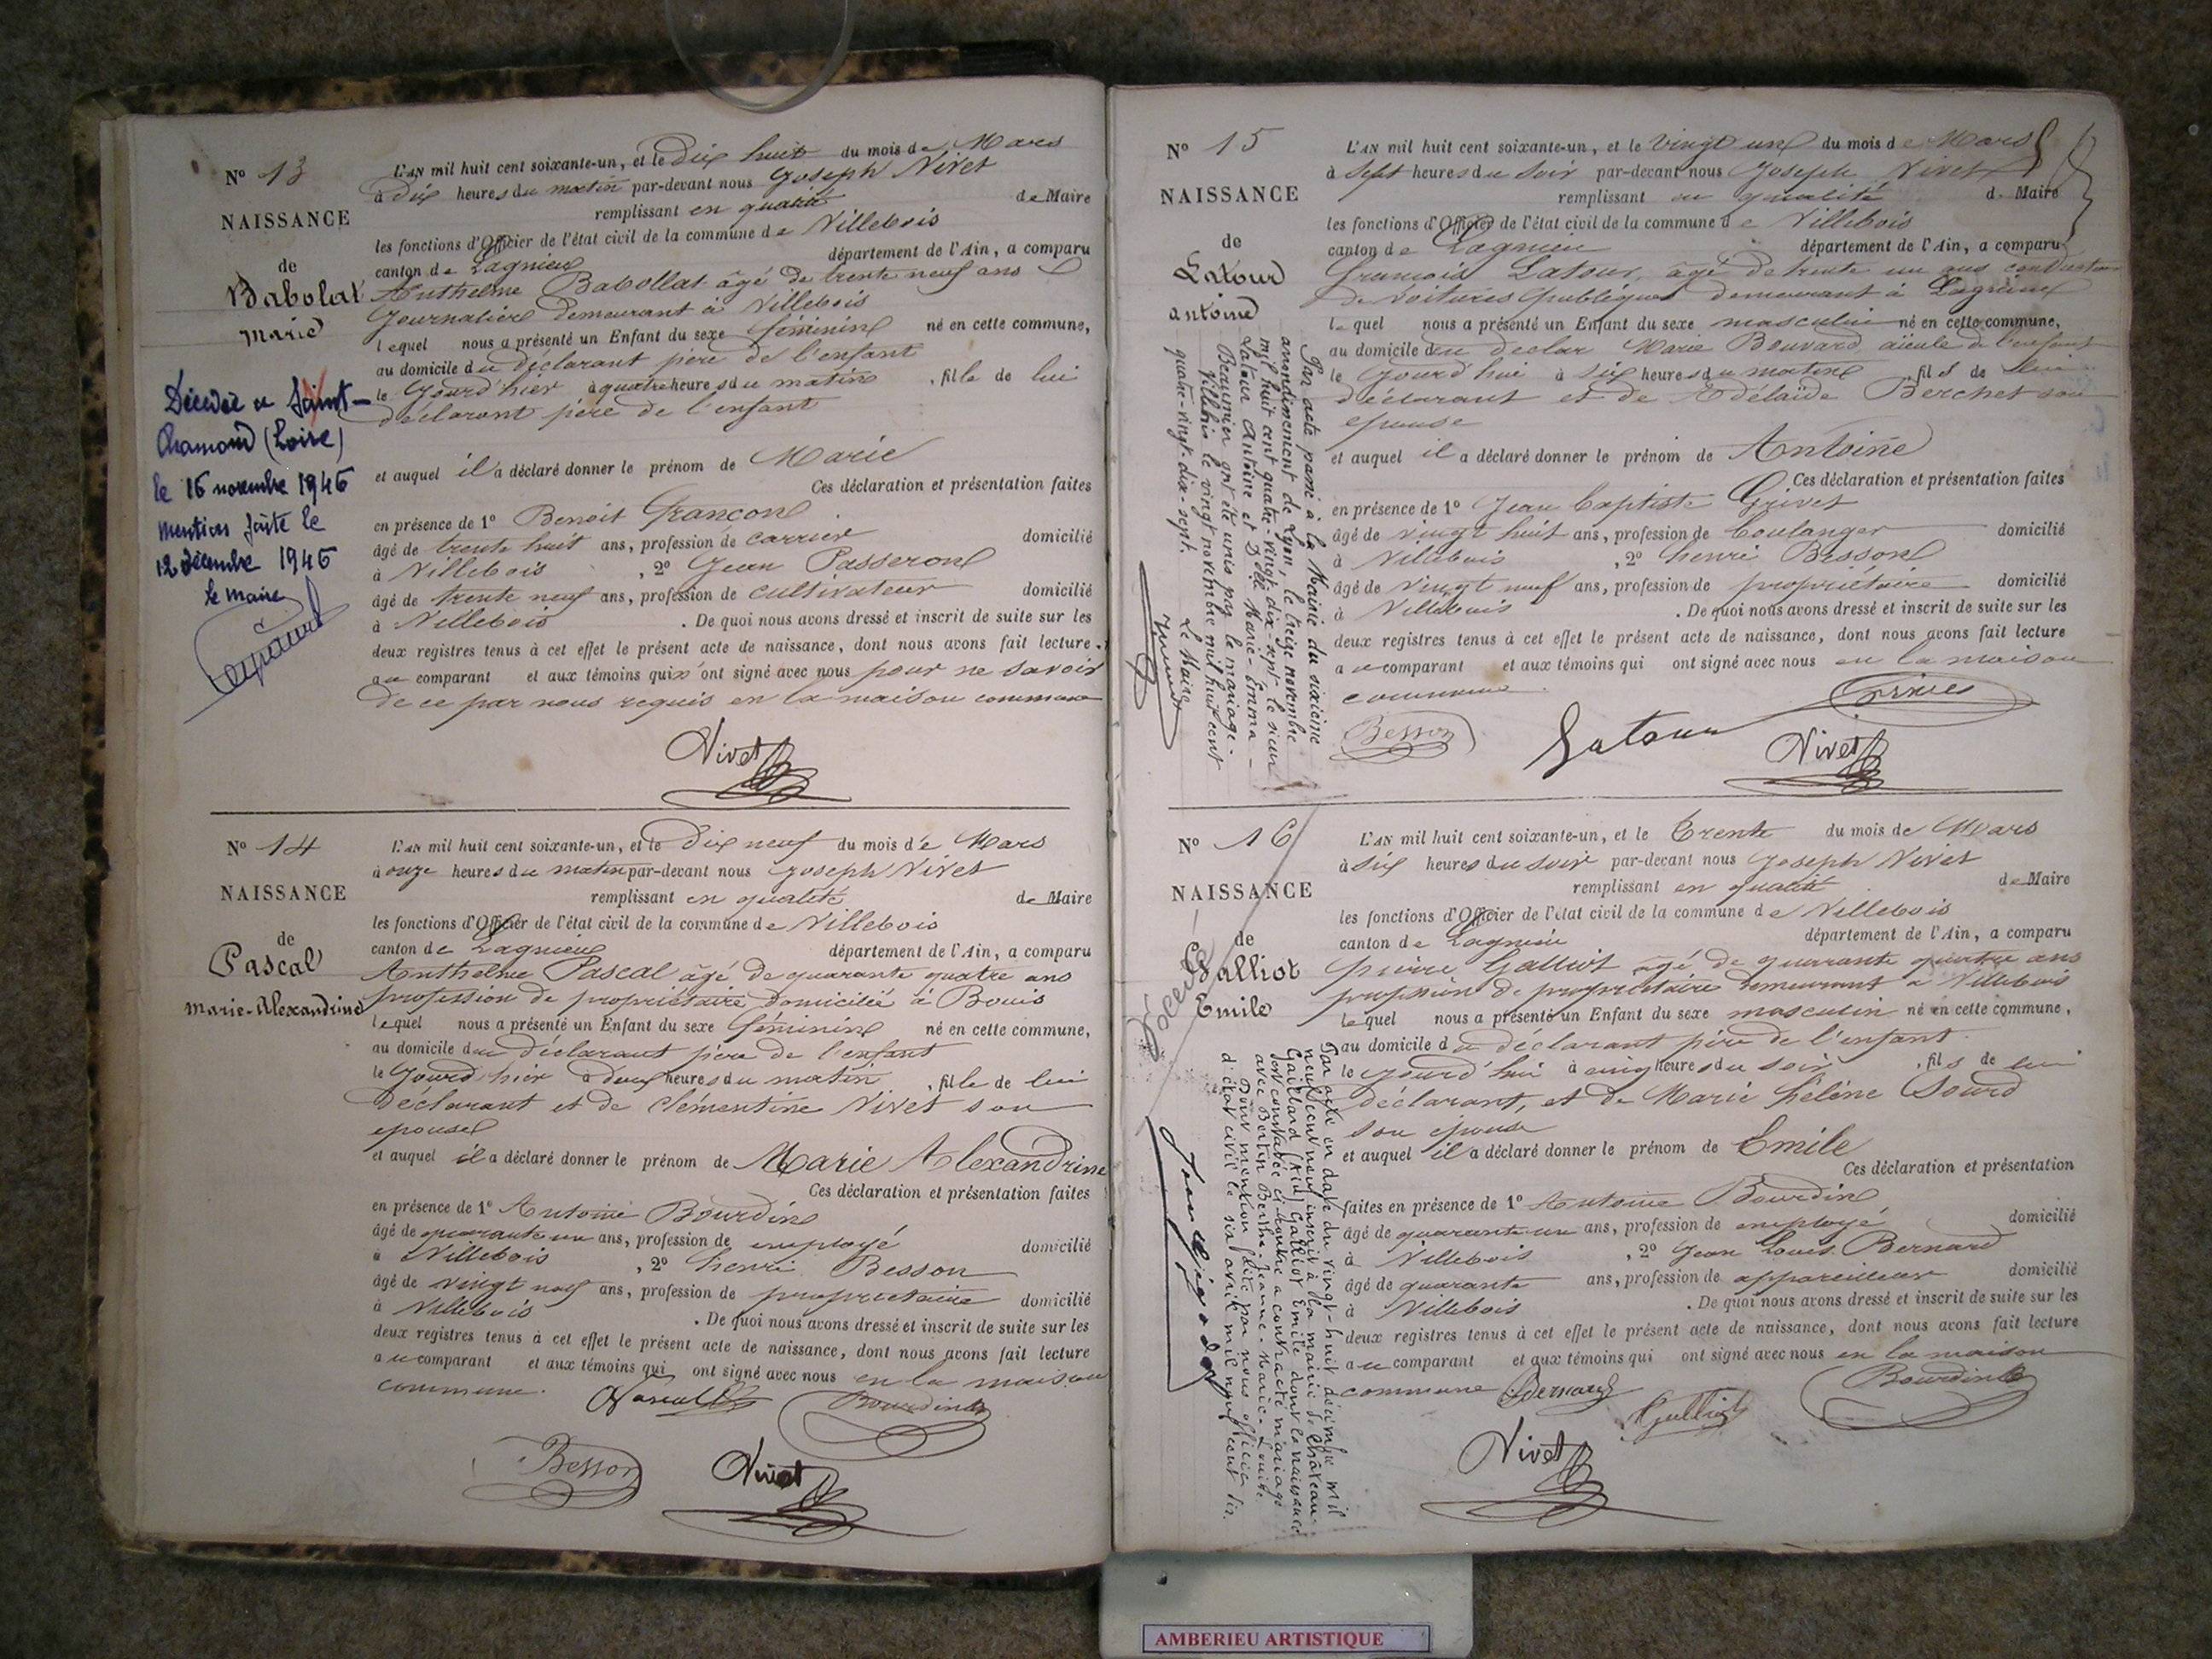 N° 13
NAISSANCE
de
Babolat
Marie
Décédée à Saint-
Chamond (Loire)
le 16 novembre 1946
mention faite le
12 décembre 1946
le maire
L'AN mil huit cent soixante-un, et le Dix huit du mois de Mars
à dix heures du matin par-devant nous Joseph Nivet
remplissant en qualité de Maire
les fonctions d'Officier de l'état civil de la commune de Villebois
canton de Lagnieu département de l'Ain, a comparu
Anthelme Babollat âgé de trente neuf ans
Journalier demeurant à Villebois
lequel nous a présenté un Enfant du sexe féminin né en cette commune,
au domicile du déclarant père de l'enfant
le Jourd'hier à quatre heures du matin, fille de lui
déclarant père de l'enfant
et auquel il a déclaré donner le prénom de Marie
Ces déclaration et présentation faites
en présence de 1° Benoit Françon
âgé de trente huit ans, profession de carrier domicilié
à Villebois, 2° Jean Passeron
âgé de trente neuf ans, profession de cultivateur domicilié
à Villebois. De quoi nous avons dressé et inscrit de suite sur les
deux registres tenus à cet effet le présent acte de naissance, dont nous avons fait lecture
au comparant et aux témoins qui n'ont signé avec nous pour ne savoir
de ce par nous requis en la maison commune
Nivet
N° 14
NAISSANCE
de
Pascal
Marie-Alexandrine
L'AN mil huit cent soixante-un, et le Dix neuf du mois de Mars
à onze heures du matin par-devant nous Joseph Nivet
remplissant en qualité de Maire
les fonctions d'Officier de l'état civil de la commune de Villebois
canton de Lagnieu département de l'Ain, a comparu
Anthelme Pascal âgé de quarante quatre ans
profession de propriétaire domicilié à Bouis
lequel nous a présenté un Enfant du sexe féminin né en cette commune,
au domicile du déclarant père de l'enfant
le Jourd'hier à deux heures du matin, fille de lui
déclarant et de Clémentine Nivet son
epouse
et auquel il a déclaré donner le prénom de Marie Alexandrine
Ces déclaration et présentation faites
en présence de 1° Antoine Bourdin
âgé de quarante un ans, profession de employé domicilié
à Villebois, 2° henri Besson
âgé de vingt neuf ans, profession de propriétaire domicilié
à Villebois. De quoi nous avons dressé et inscrit de suite sur les
deux registres tenus à cet effet le présent acte de naissance, dont nous avons fait lecture
au comparant et aux témoins qui ont signé avec nous en la maison
commune.
Pascal Bourdin
Besson Nivet
N° 15
NAISSANCE
de
Latour
Antoine
Par acte passé à la Mairie du sixième
arrondissement de Lyon, le treize novembre
mil huit cent quatre-vingt dix-sept le sieur
Latour Antoine et Dlle Marie-Emma
Beaumier ont été unis par le mariage.
Villebois le vingt novembre mil huit cent
quatre-vingt-dix-sept. Le Maire
L'AN mil huit cent soixante-un, et le vingt un du mois de Mars
à sept heures du soir par-devant nous Joseph Nivet
remplissant en qualité de Maire
les fonctions d'Officier de l'état civil de la commune de Villebois
canton de Lagnieu département de l'Ain, a comparu
françois Latour, âgé de trente un ans conducteur
de voitures publiques demeurant à Lagnieu
lequel nous a présenté un Enfant du sexe masculin né en cette commune,
au domicile du declar Marie Bouvard aïeule de l'enfant
le Jourd'hui à six heures du matin, fils de lui
déclarant et de Adélaïde Berchet son
epouse
et auquel il a déclaré donner le prénom de Antoine
Ces déclaration et présentation faites
en présence de 1° Jean baptiste Grivet
âgé de vingt huit ans, profession de boulanger domicilié
à Villebois, 2° henri Besson
âgé de vingt neuf ans, profession de propriétaire domicilié
à Villebois. De quoi nous avons dressé et inscrit de suite sur les
deux registres tenus à cet effet le présent acte de naissance, dont nous avons fait lecture
au comparant et aux témoins qui ont signé avec nous en la maison
commune.
Besson Latour Nivet
N° 16
NAISSANCE
de
Galliot
Emile
Décédé
Par acte en date du vingt-huit décembre mil
neuf cent neuf, inscrit à la mairie de Château-
Gaillard (Ain) Galliot Emile dont la naissance
est constatée ci-contre a contracté mariage
avec Bertin Berthe-Jeanne-Marie-Louise.
Dont mention faite par nous officier
d'état civil le six avril mil neuf cent dix.
L'AN mil huit cent soixante-un, et le Trente du mois de Mars
à six heures du soir par-devant nous Joseph Nivet
remplissant en qualité de Maire
les fonctions d'Officier de l'état civil de la commune de Villebois
canton de Lagnieu département de l'Ain, a comparu
pierre Galliot âgé de quarante quatre ans
profession de propriétaire demeurant à Villebois
lequel nous a présenté un Enfant du sexe masculin né en cette commune,
au domicile du déclarant père de l'enfant
le jourd'hui à cinq heures du soir, fils de lui
déclarant, et de Marie hélène Sourd
son epouse
et auquel il a déclaré donner le prénom de Emile
Ces déclaration et présentation
faites en présence de 1° Antoine Bourdin
âgé de quarante un ans, profession de employé domicilié
à Villebois, 2° Jean Louis Bernard
âgé de quarante ans, profession de appareilleur domicilié
à Villebois. De quoi nous avons dressé et inscrit de suite sur les
deux registres tenus à cet effet le présent acte de naissance, dont nous avons fait lecture
au comparant et aux témoins qui ont signé avec nous en la maison
commune Bernard Bourdin
Galliot
Nivet
AMBERIEU ARTISTIQUE